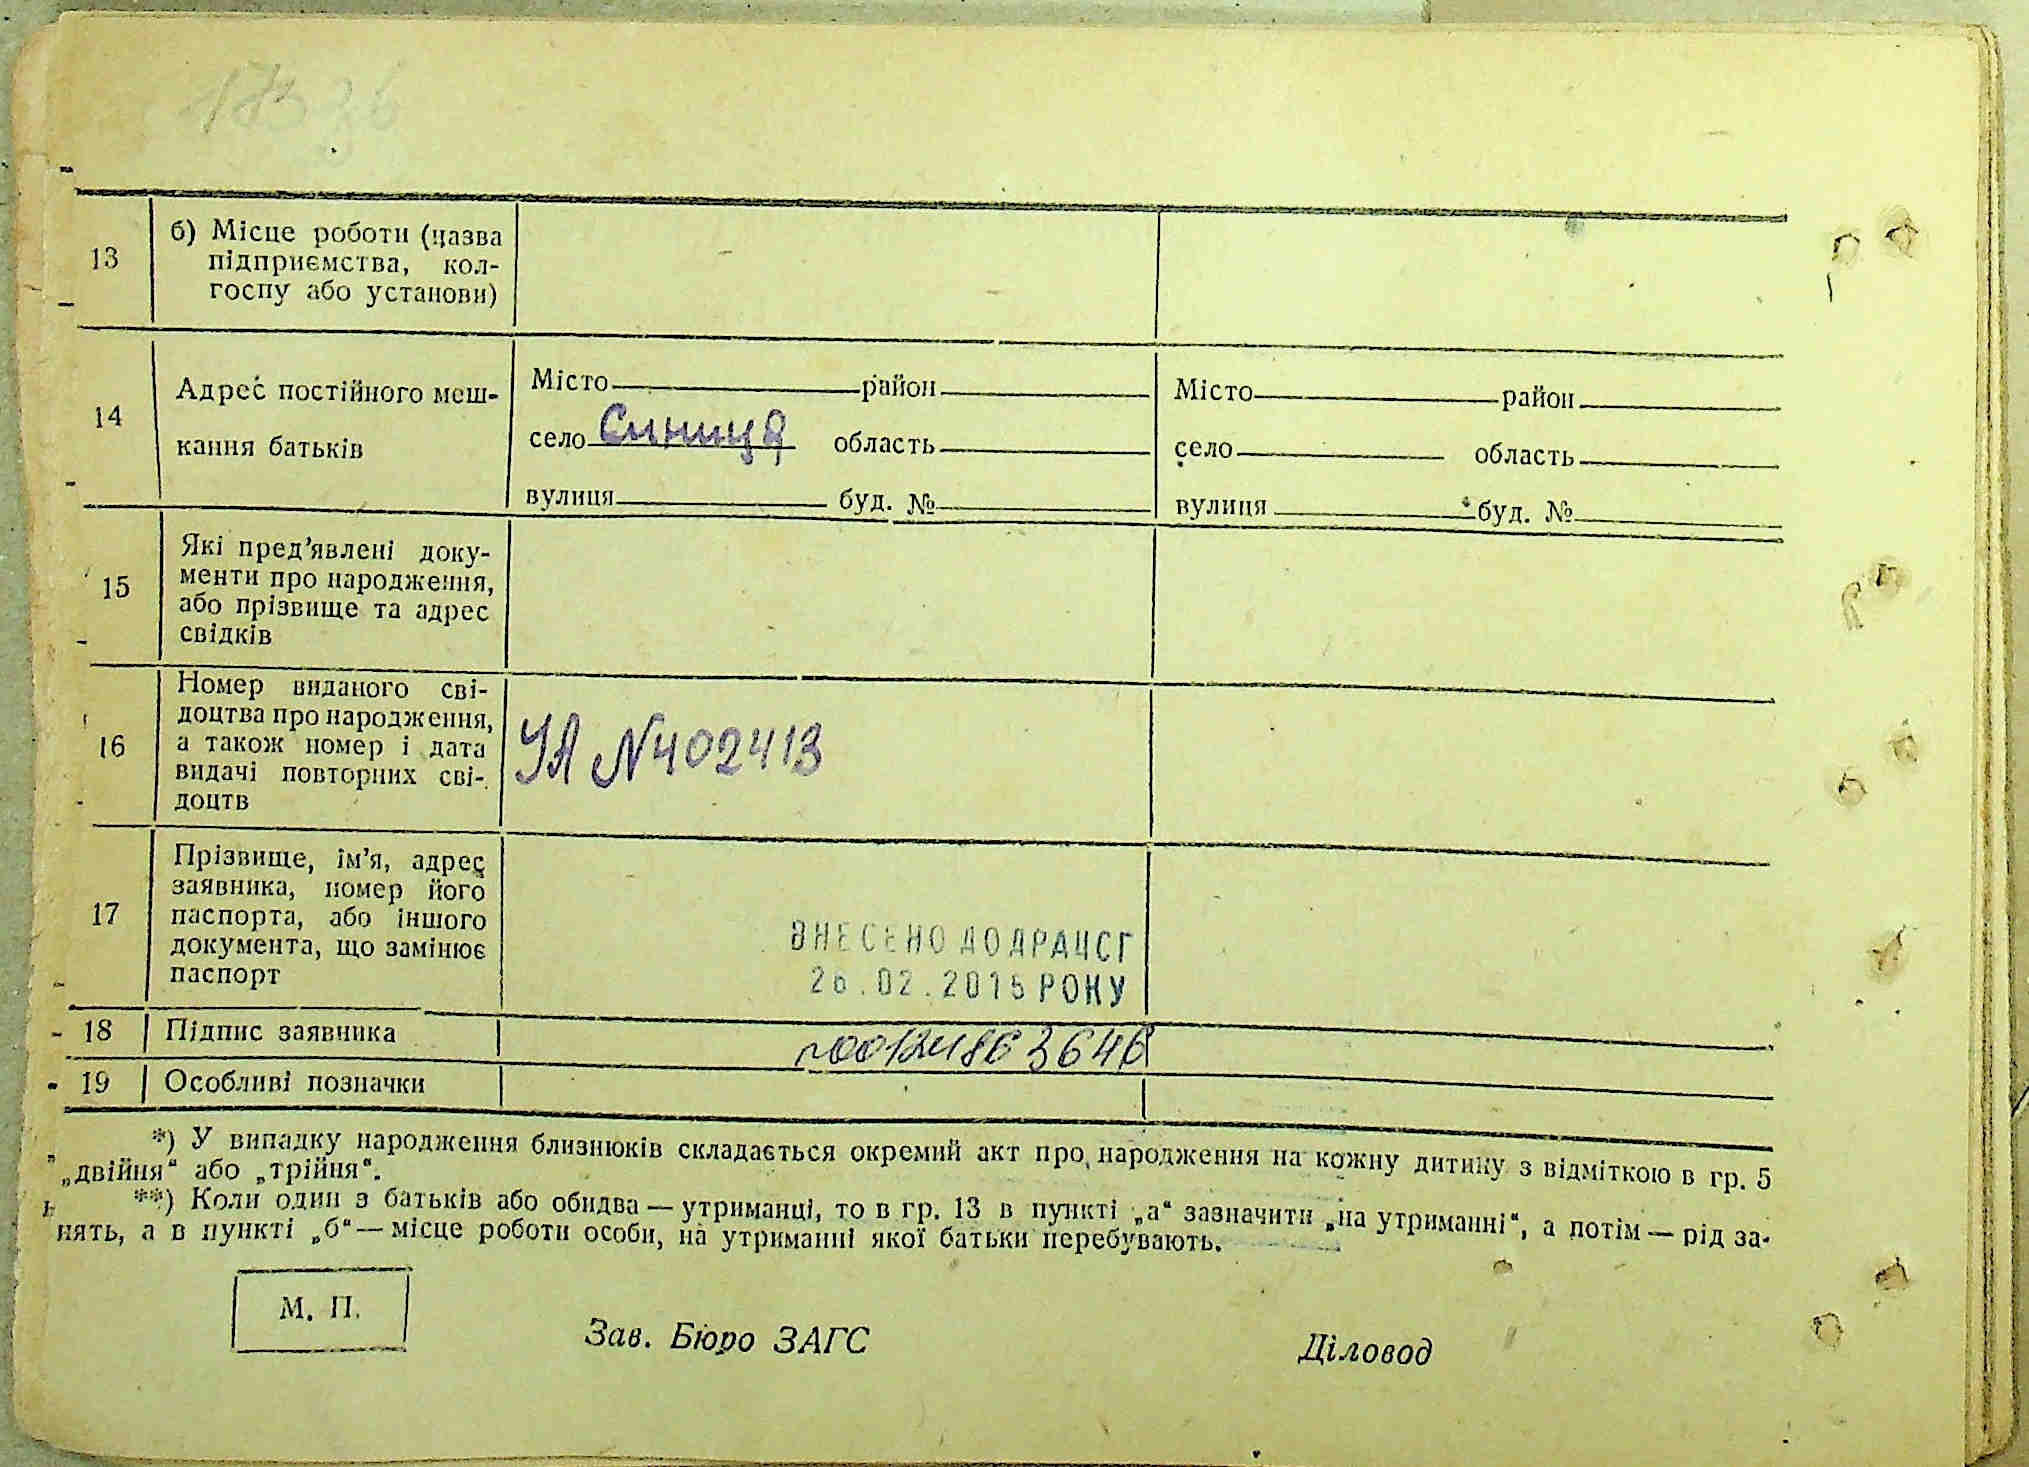 13
б) Місце роботи (назва
підприємства, кол-
госпу або установи)
14
Адрес постійного меш-
кання батьків
Місто район
село Синиця область
вулиця буд. №
Місто район
село область
вулиця буд. №
15
Які пред'явлені доку-
менти про народження,
або прізвище та адрес
свідків
16
Номер виданого сві-
доцтва про народження,
а також номер і дата
видачі повторних сві-
доцтв
УА №402413
17
Прізвище, ім'я, адрес
заявника, номер його
паспорта, або іншого
документа, що замінює
паспорт
ВНЕСЕНО ДО ДРАЦСГ
26.02.2015 РОКУ
18 Підпис заявника
19 Особливі позначки
*) У випадку народження близнюків складається окремий акт про народження на кожну дитину з відміткою в гр. 5
„двійня“ або „трійня“.
**) Коли один з батьків або обидва — утриманці, то в гр. 13 в пункті „а“ зазначити „на утриманні“, а потім — рід за-
нять, а в пункті „б“ — місце роботи особи, на утриманні якої батьки перебувають.
М. П.
Зав. Бюро ЗАГС
Діловод